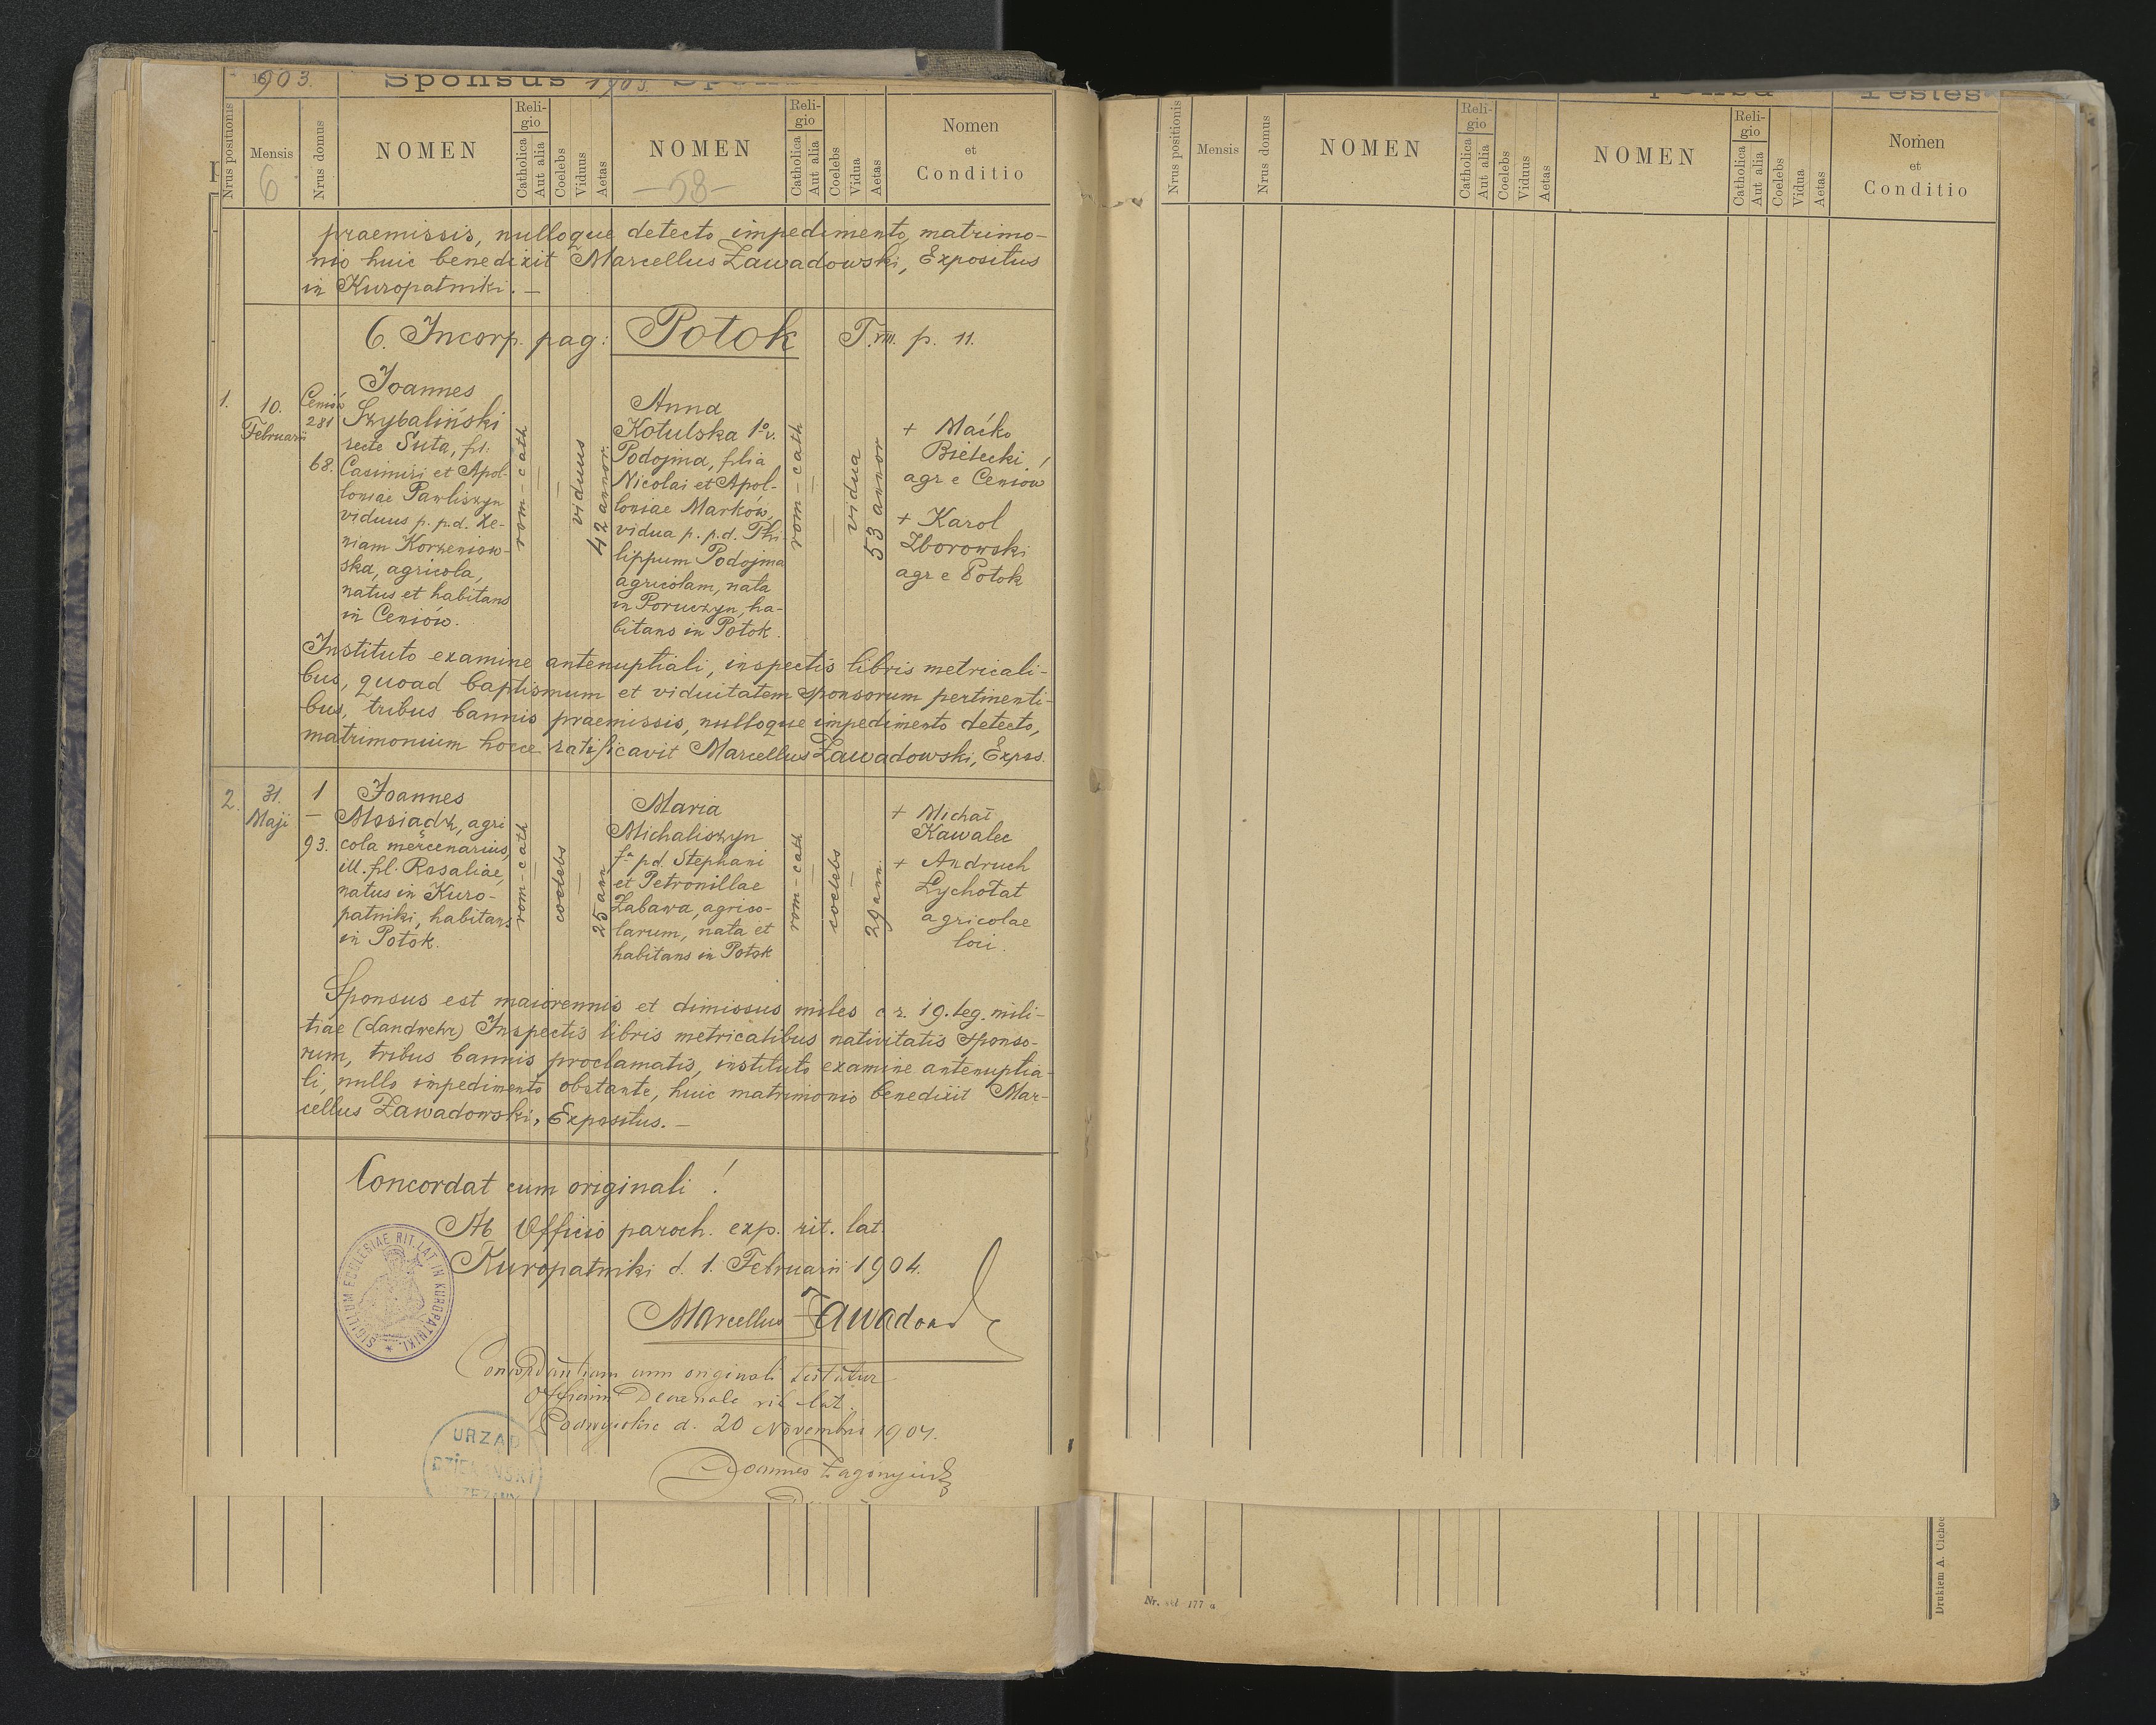 1903. Sponsus 1903.
Nrus positionis
Mensis
6
Nrus domus
NOMEN
Religio
Catholica
Aut alia
Coelebs
Viduus
Aetas
NOMEN
-58-
Religio
Catholica
Aut alia
Coelebs
Vidua
Aetas
Nomen
et
Conditio
praemissis, nulloque detecto impedimento, matrimo-
nio huic benedixit Marcellus Zawadowski, Expositus
in Kuropatniki. —
6. Incorp. pag: Potok T. VIII. p. 11.
1.
10.
Februarii
Ceniów
281
68.
Joannes
Szybaliński
recte Suta, fil.
Casimiri et Apol-
loniae Pawliszyn
viduus p. p.d. Xe-
niam Korzeniow-
ska, agricola,
natus et habitans
in Ceniów.
rom-cath
—
—
viduus
42 annor.
Anna
Kotulska 1o v.
Podojma, filia
Nicolai et Apol-
loniae Marków,
vidua p. p.d. Phi-
lippum Podojma
agricolam, nata
in Poruczyn, ha-
bitans in Potok.
rom-cath
—
—
vidua
53 annor
+ Maćko
Bielecki,
agr e Ceniów
+ Karol
Zborowski
agr e Potok
Instituto examine antenuptiali, inspectis libris metricali-
bus, quoad baptismum et viduitatem sponsorum pertinenti-
bus, tribus bannis praemissis, nulloque impedimento detecto,
matrimonium hocce ratificavit Marcellus Zawadowski, Expos.
2.
31.
Maji
1
—
93.
Joannes
Mosiądz, agri
cola mercenarius,
ill. fil. Rosaliae,
natus in Kuro-
patniki, habitans
in Potok.
rom-cath
—
coelebs
—
25 ann
Maria
Michaliszyn
fa pd. Stephani
et Petronillae
Zabawa, agrico-
larum, nata et
habitans in Potok
rom-cath
—
coelebs
—
29 ann.
+ Michał
Kawalec
+ Andruch
Łychołat
agricolae
loci.
Sponsus est maiorennis et dimissus miles c. r. 19. leg. mili-
tiae (Landwehr) Inspectis libris metricalibus nativitatis sponso-
rum, tribus bannis proclamatis, instituto examine antenuptia-
li, nullo impedimento obstante, huic matrimonio benedixit Mar-
cellus Zawadowski, Expositus. —
Concordat cum originali!
Ab Officio paroch. exp. rit. lat.
Kuropatniki d. 1. Februarii 1904.
SIGILLUM ECCLESIAE RIT. LAT. IN KUROPATNIKI.
Marcellus Zawadowski
Concordantiam cum originali testatur
Officium Decanale rit. lat.
d. 20 Novembris 1904.
URZĄD
DZIEKAŃSKI
Joannes
Sponsa Testes
Nrus positionis
Mensis
Nrus domus
NOMEN
Religio
Catholica
Aut alia
Coelebs
Viduus
Aetas
NOMEN
Religio
Catholica
Aut alia
Coelebs
Vidua
Aetas
Nomen
et
Conditio
Nr. 177 a
Drukiem A. Cichoc